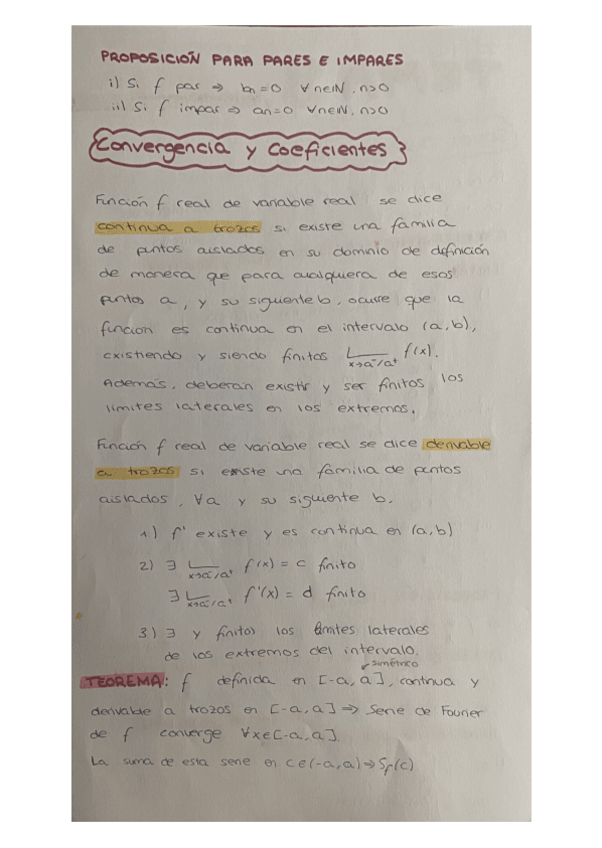 PROPOSICIÓN PARA PARES E IMPARES
i) Si f par ⇒ bn=0 ∀n∈ℕ, n>0
ii) Si f impar ⇒ an=0 ∀n∈ℕ, n>0
Convergencia y Coeficientes
Función f real de variable real se dice
continua a trozos si existe una familia
de puntos aislados en su dominio de definición
de manera que para cualquiera de esos
puntos a, y su siguiente b, ocurre que la
función es continua en el intervalo (a,b),
existiendo y siendo finitos L x→a⁻/a⁺ f(x).
Además, deberán existir y ser finitos los
límites laterales en los extremos.
Función f real de variable real se dice derivable
a trozos si existe una familia de puntos
aislados, ∀a y su siguiente b,
1) f' existe y es continua en (a,b)
2) ∃ L x→a⁻/a⁺ f(x) = c finito
∃ L x→a⁻/a⁺ f'(x) = d finito
3) ∃ y finitos los límites laterales
de los extremos del intervalo.
simétrico
TEOREMA: f definida en [-a, a], continua y
derivable a trozos en [-a,a] ⇒ Serie de Fourier
de f converge ∀x∈[-a,a].
La suma de esta serie en c∈(-a,a) → Sf(c)